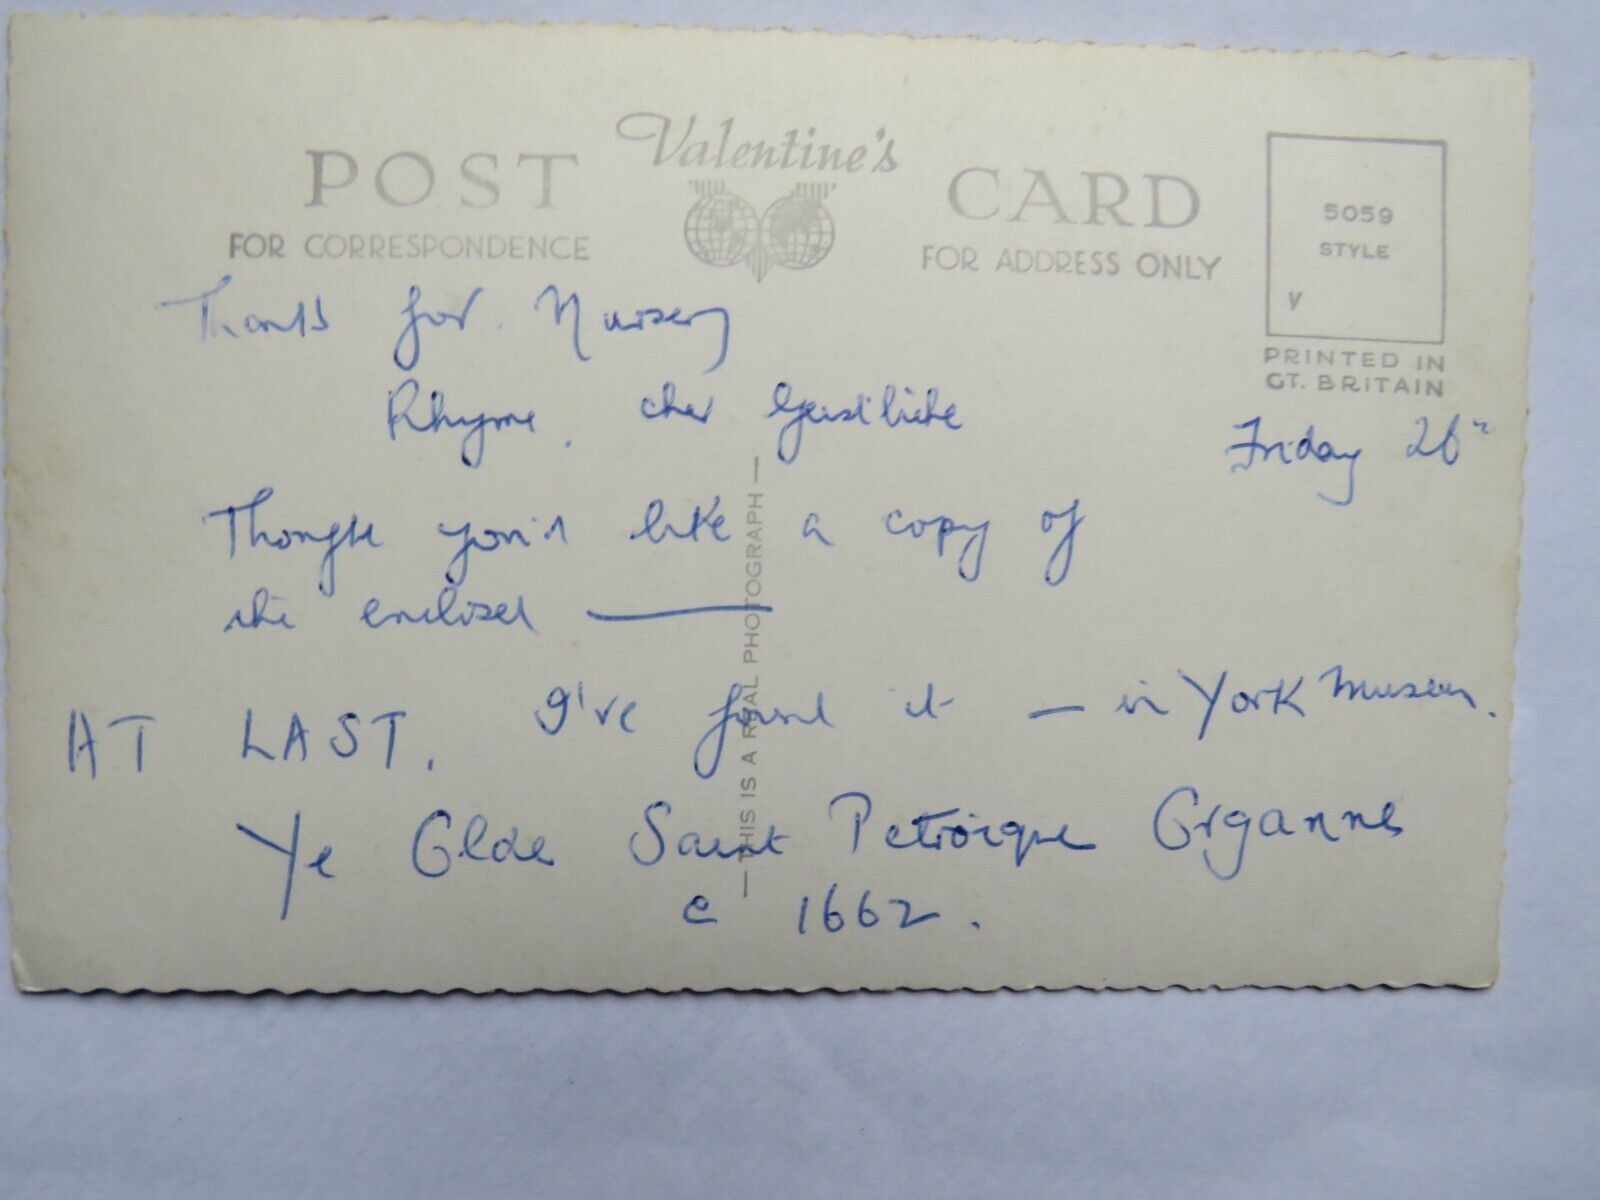 POST Valentine's CARD
FOR CORRESPONDENCE
FOR ADDRESS ONLY
5059
STYLE
V
PRINTED IN
GT. BRITAIN
Thanks for Nursery
Rhyme, cher
Friday 26"
Thought you'd like a copy of
the enclosed —
AT LAST. I've found it — in York Museum.
Ye Olde Saint Petroique Organne
c 1662.
— THIS IS A REAL PHOTOGRAPH —